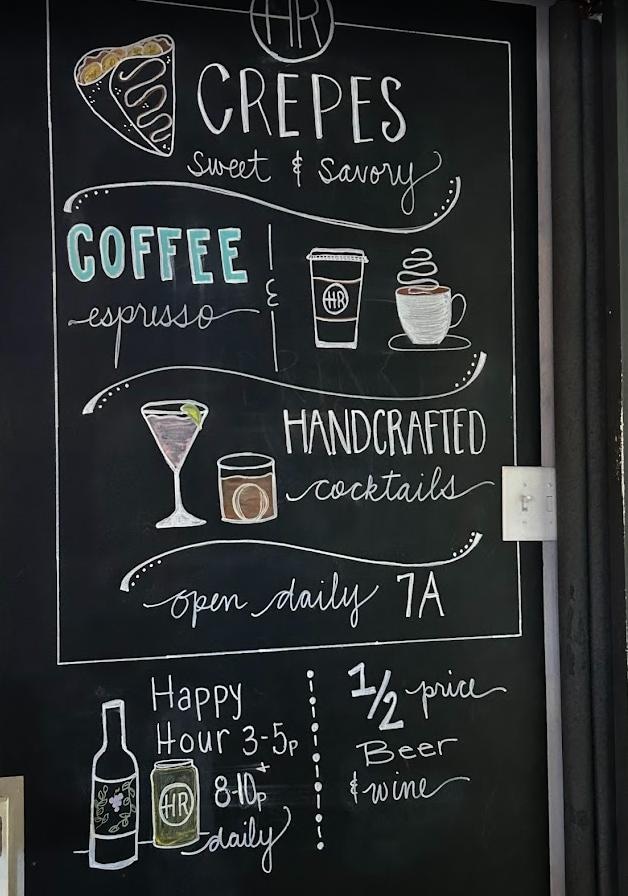 HR
CREPES
sweet & savory
COFFEE
espresso
&
HR
HANDCRAFTED
cocktails
open daily 7A
Happy
Hour 3-5p
+
8-10p
daily
HR
1/2 price
Beer
& wine